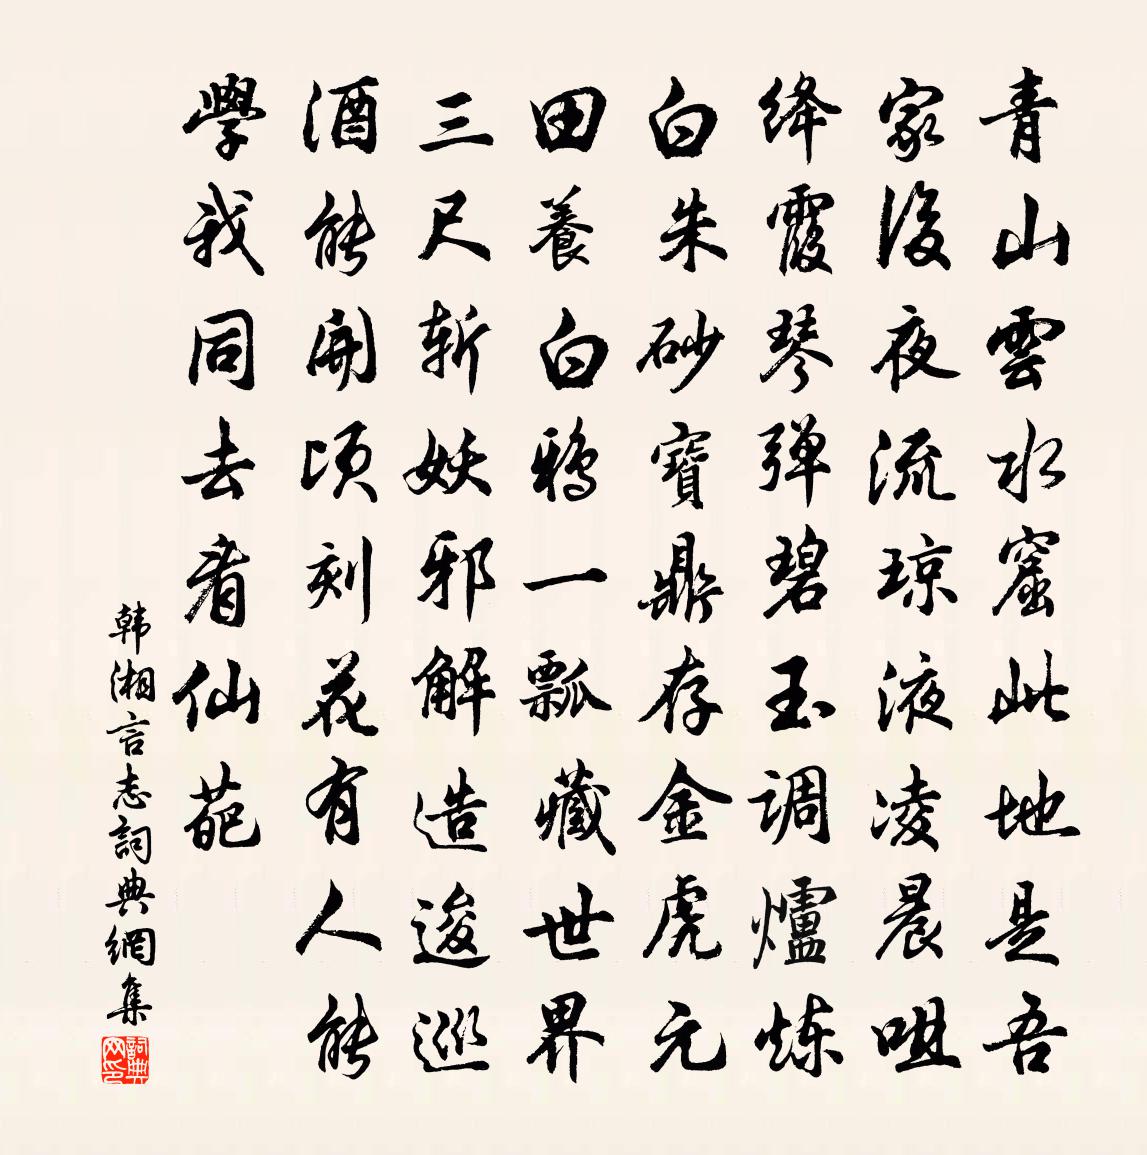 青山雲水窟此地是吾
家後夜流琼液凌晨咀
绛霞琴弹碧玉调爐炼
白朱砂寶鼎存金虎元
田養白鸦一瓢藏世界
三尺斩妖邪解造逡巡
酒能開顷刻花有人能
學我同去看仙葩
韩湘言志詞典網集
詞典网印